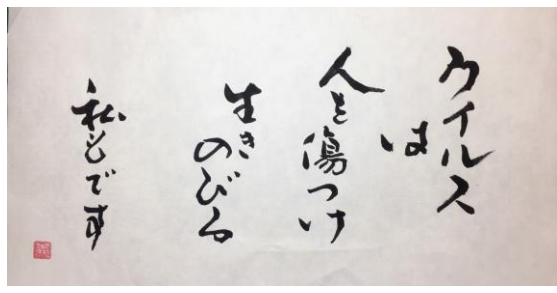 ウイルス
は
人を傷つけ
生き
のびる
私もです